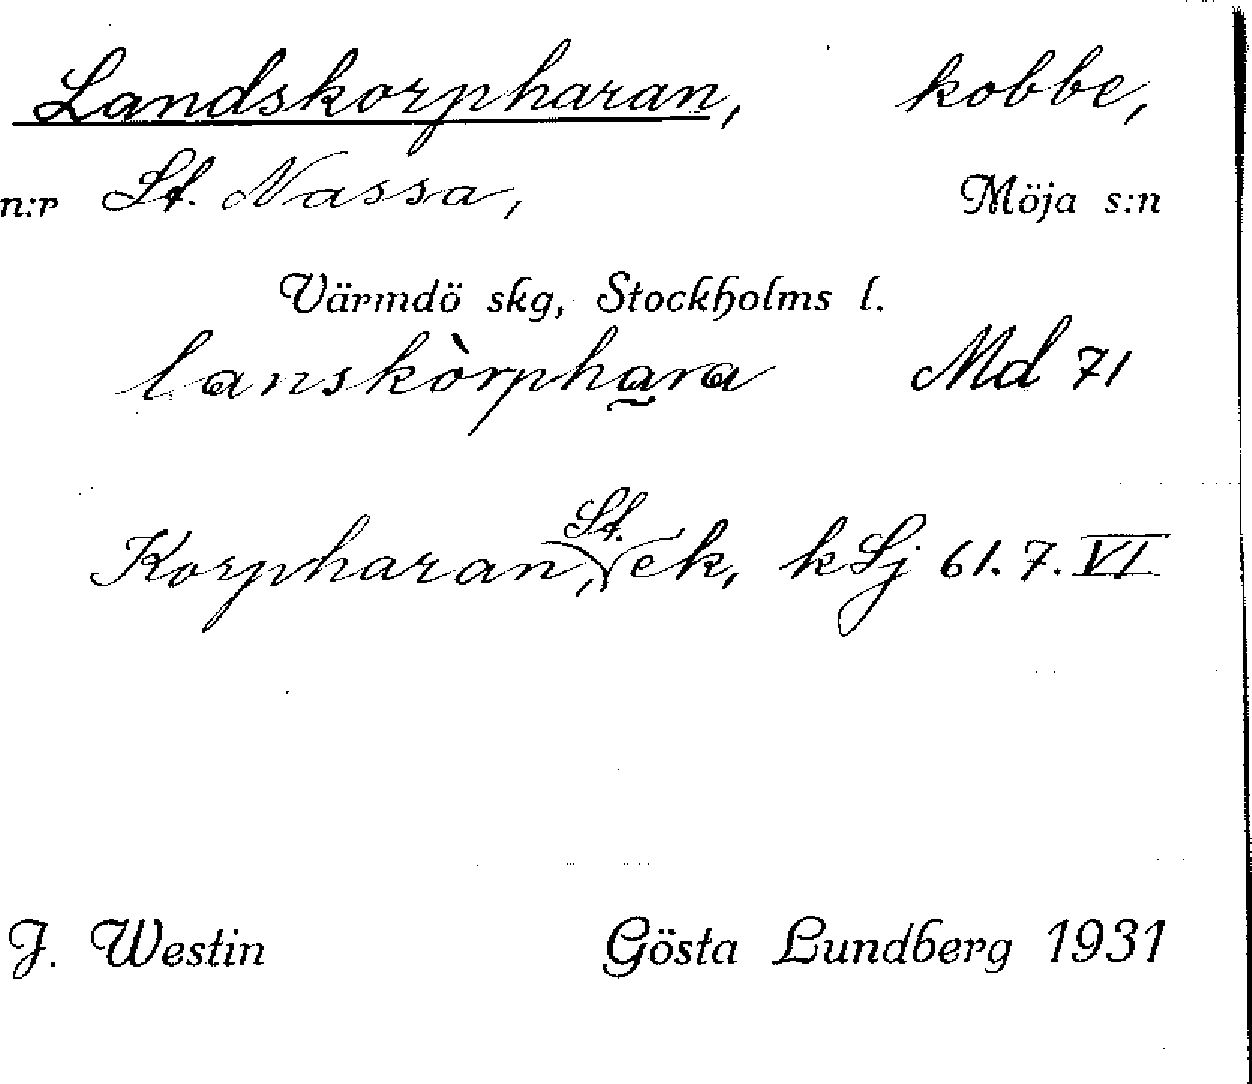 Landskorpharan, kobbe,
n:r St. Nassa, Möja s:n
Värmdö skg, Stockholms l.
lanskòrphara Md 71
Korpharan, St. ek, kSj 61.7.VI
J. Westin Gösta Lundberg 1931